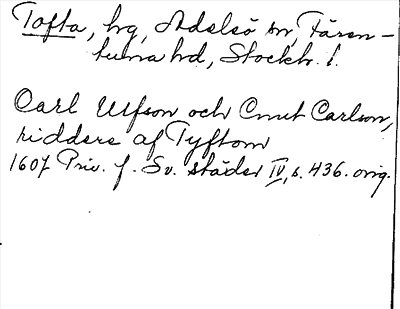 Tofta, hg, Adelsö sn, Fären-
tuna hd, Stockh. l.
Carl Ulfson och Cnut Carlson,
riddere af Tyftom
1607 Priv. f. Sv. städer IV, s. 436. orig.